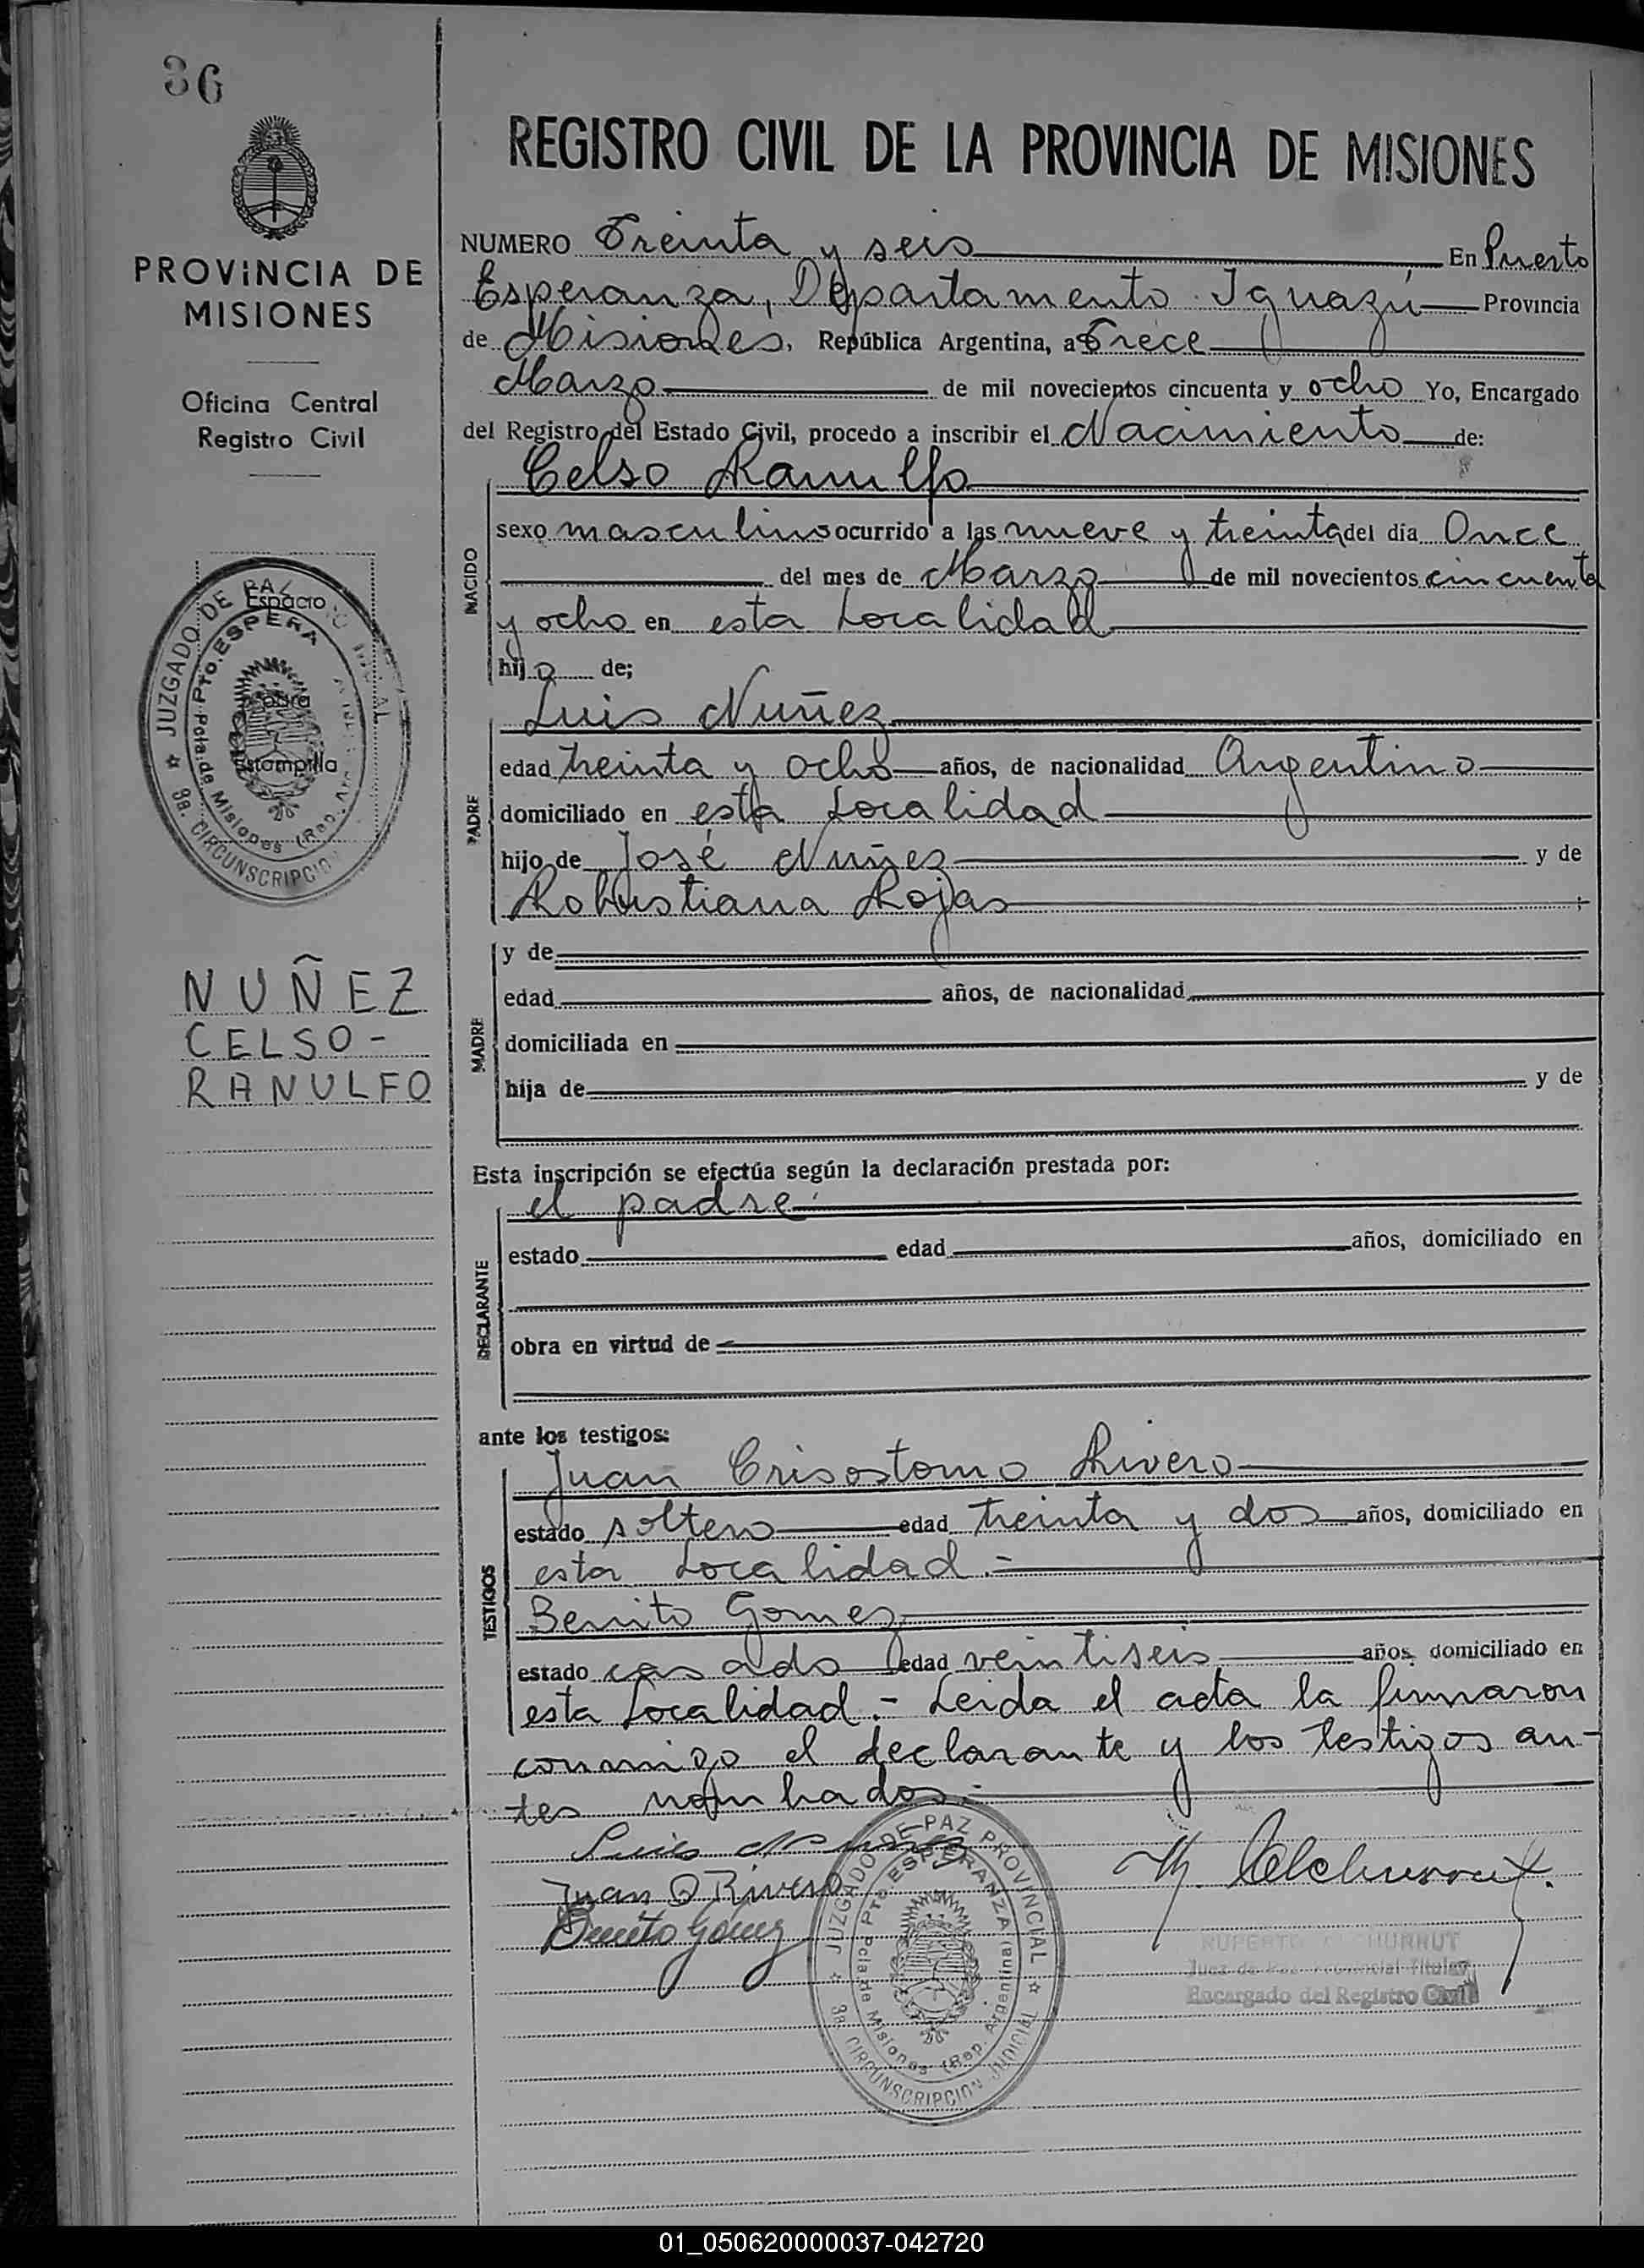 36
PROVINCIA DE
MISIONES
Oficina Central
Registro Civil
JUZGADO DE PAZ
Pto. ESPERA
Pcia. de Misiones (Rep. Arg
3a. CIRCUNSCRIPCION
Espacio
para
Estampilla
NUÑEZ
CELSO-
RANULFO
REGISTRO CIVIL DE LA PROVINCIA DE MISIONES
NUMERO Treinta y seis En Puerto
Esperanza, Departamento Iguazú Provincia
de Misiones, República Argentina, a Trece
Marzo de mil novecientos cincuenta y ocho Yo, Encargado
del Registro del Estado Civil, procedo a inscribir el Nacimiento de:
NACIDO
Celso Ranulfo
sexo masculino ocurrido a las nueve y treinta del día Once
del mes de Marzo de mil novecientos cincuenta
y ocho en esta Localidad
hijo de;
PADRE
Luis Nuñez
edad treinta y ocho años, de nacionalidad Argentino
domiciliado en esta Localidad
hijo de José Nuñez y de
Robustiana Rojas
MADRE
y de
edad años, de nacionalidad
domiciliada en
hija de y de
Esta inscripción se efectúa según la declaración prestada por:
DECLARANTE
el padre
estado edad años, domiciliado en
obra en virtud de
ante los testigos:
TESTIGOS
Juan Crisostomo Rivero
estado soltero edad treinta y dos años, domiciliado en
esta Localidad.=
Benito Gomez
estado casado edad veintiseis años, domiciliado en
esta Localidad.- Leida el acta la firmaron
conmigo el declarante y los testigos an-
tes nombrados.-
Luis Nuñez
Juan C Rivero
Benito Gómez
JUZGADO DE PAZ PROVINCIAL
Pto. ESPERANZA
Pcia. de Misiones (Rep. Argentina)
3a. CIRCUNSCRIPCION JUDICIAL
Juez de Paz Provincial Titular
Encargado del Registro Civil
01_050620000037-042720